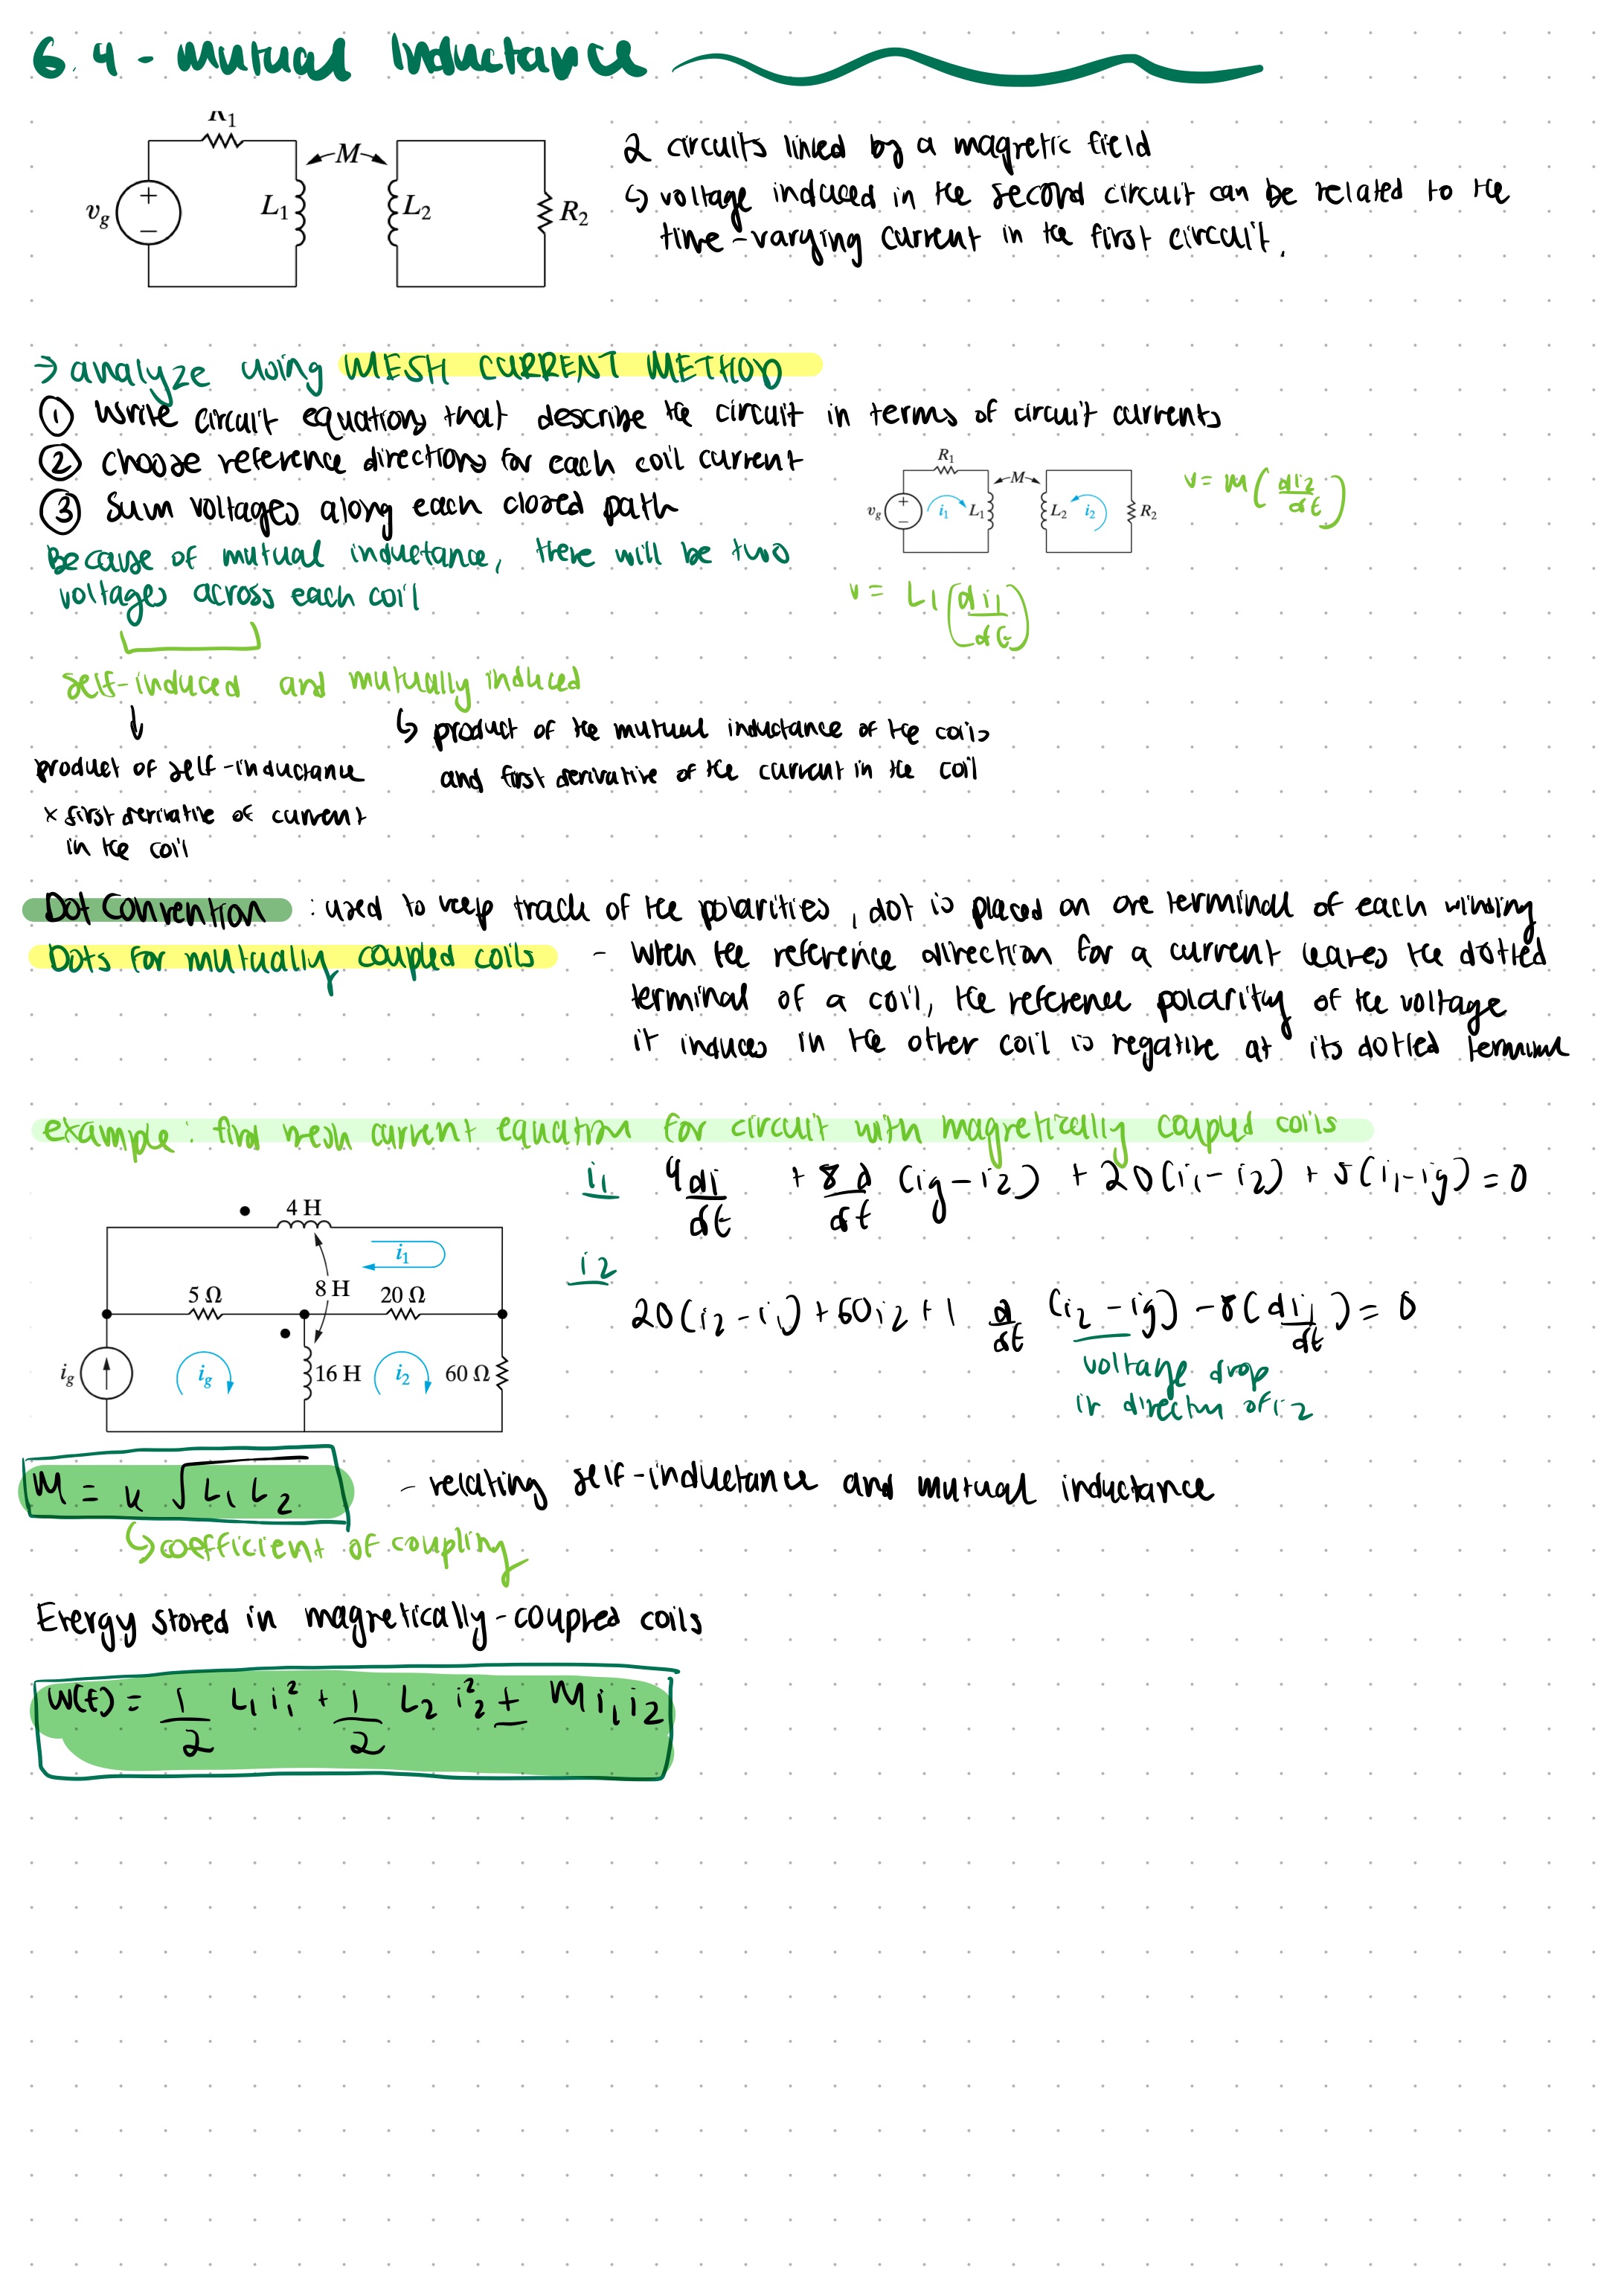 6.4 - Mutual Inductance
R1
M
vg
+
−
L1
L2
R2
2 circuits linked by a magnetic field
↳ voltage induced in the second circuit can be related to the
time-varying current in the first circuit.
→ analyze using MESH CURRENT METHOD
① Write circuit equations that describe the circuit in terms of circuit currents
② choose reference directions for each coil current
③ Sum voltages along each closed path
R1
M
vg
+
−
i1
L1
L2
i2
R2
v = M(di2/dt)
Because of mutual inductance, there will be two
voltages across each coil
v = L1(di1/dt)
self-induced and mutually induced
↓
↳ product of the mutual inductance of the coils
and first derivative of the current in the coil
product of self-inductance
× first derivative of current
in the coil
Dot Convention : used to keep track of the polarities, dot is placed on one terminal of each winding
Dots for mutually coupled coils - when the reference direction for a current leaves the dotted
terminal of a coil, the reference polarity of the voltage
it induces in the other coil is negative at its dotted terminal
example: find mesh current equation for circuit with magnetically coupled coils
i1 4 di/dt + 8 d/dt (ig - i2) + 20(i1 - i2) + 5(i1 - ig) = 0
4 H
i1
5 Ω
8 H
20 Ω
ig
ig
16 H
i2
60 Ω
i2
20(i2 - i1) + 60i2 + 1 d/dt (i2 - ig) - 8(di1/dt) = 0
voltage drop
in directn of i2
M = k √L1 L2 - relating self-inductance and mutual inductance
↳ coefficient of coupling
Energy stored in magnetically-coupled coils
W(t) = 1/2 L1 i1² + 1/2 L2 i2² ± M i1 i2